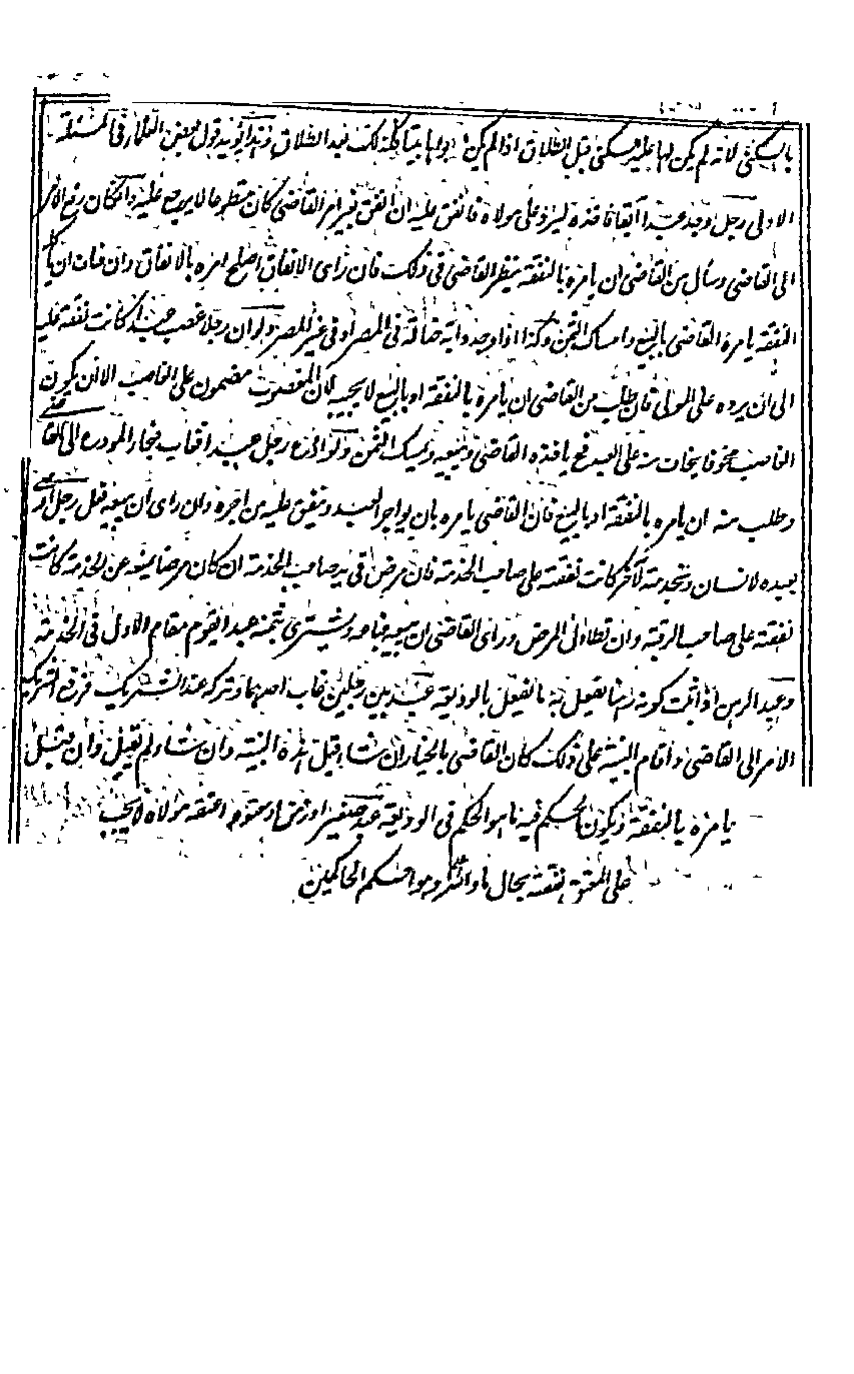 بالسكنى لانه لم يكن لها عليه سكنى قبل الطلاق اذا لم يكن بواها بيتا فكذلك بعد الطلاق وهذا يؤيد قول بعض العلماء فى المسئلة
الاولى رجل وجد عبدا آبقا فاخذه ليرده على مولاه فانفق عليه ان انفق بغير امر القاضى كان متطوعا لا يرجع عليه وان كان رفع الامر
الى القاضى وسأل من القاضى ان يامره بالنفقة ينظر القاضى فى ذلك فان رأى الانفاق اصلح امره بالانفاق وان خاف ان تأكله
النفقة يامره القاضى بالبيع وامساك الثمن وكذا اذا وجد دابة ضالة فى المصر او فى غير المصر ولو ان رجلا غصب عبدا كانت نفقته عليه
الى ان يرده على المولى فان طلب من القاضى ان يامره بالنفقة او بالبيع لا يجيبه لان المغصوب مضمون على الغاصب الا ان يكون
الغاصب مخوفا يخاف منه على العبد فح ياخذه القاضى ويبيعه ويمسك الثمن ولو اودع رجل عبدا فغاب فجاء المودع الى القاضى
وطلب منه ان يامره بالنفقة او بالبيع فان القاضى يامره بان يواجر العبد وينفق عليه من اجره وان رأى ان يبيعه فعل رجل اوصى
بعبده لانسان وبخدمته لآخر كانت نفقته على صاحب الخدمة فان مرض فى يد صاحب الخدمة ان كان مرضا يمنعه عن الخدمة كانت
نفقته على صاحب الرقبة وان تطاول المرض ورأى القاضى ان يبيعه فباعه ويشترى بثمنه عبدا يقوم مقام الاول فى الخدمة
وعبد الرهن اذا ثبت كونه رهنا يفعل به ما يفعل بالوديعة عبد بين رجلين غاب احدهما وتركه عند الشريك فرفع الشريك
الامر الى القاضى واقام البينة على ذلك كان القاضى بالخيار ان شاء قبل هذه البينة وان شاء لم يقبل وان قبل
يامره بالنفقة ويكون الحكم فيه ما هو الحكم فى الوديعة عبد صغير او زمن او معتوه اعتقه مولاه لا يجب
على المعتق نفقته بحال والله احكم الحاكمين